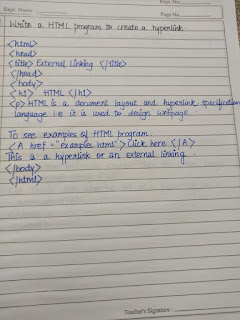 Expt. Name
Page No.
Write a HTML program to create a hyperlink.
<html>
<head>
<title> External linking </title>
</head>
<body>
<h1> HTML </h1>
<p> HTML is a document layout and hyperlink specification
language i.e it is used to design webpage.
To see examples of HTML program
<A href = "examples.html" > Click here </A>
This is a hyperlink or an external linking.
</body>
</html>
Teacher's Signature :